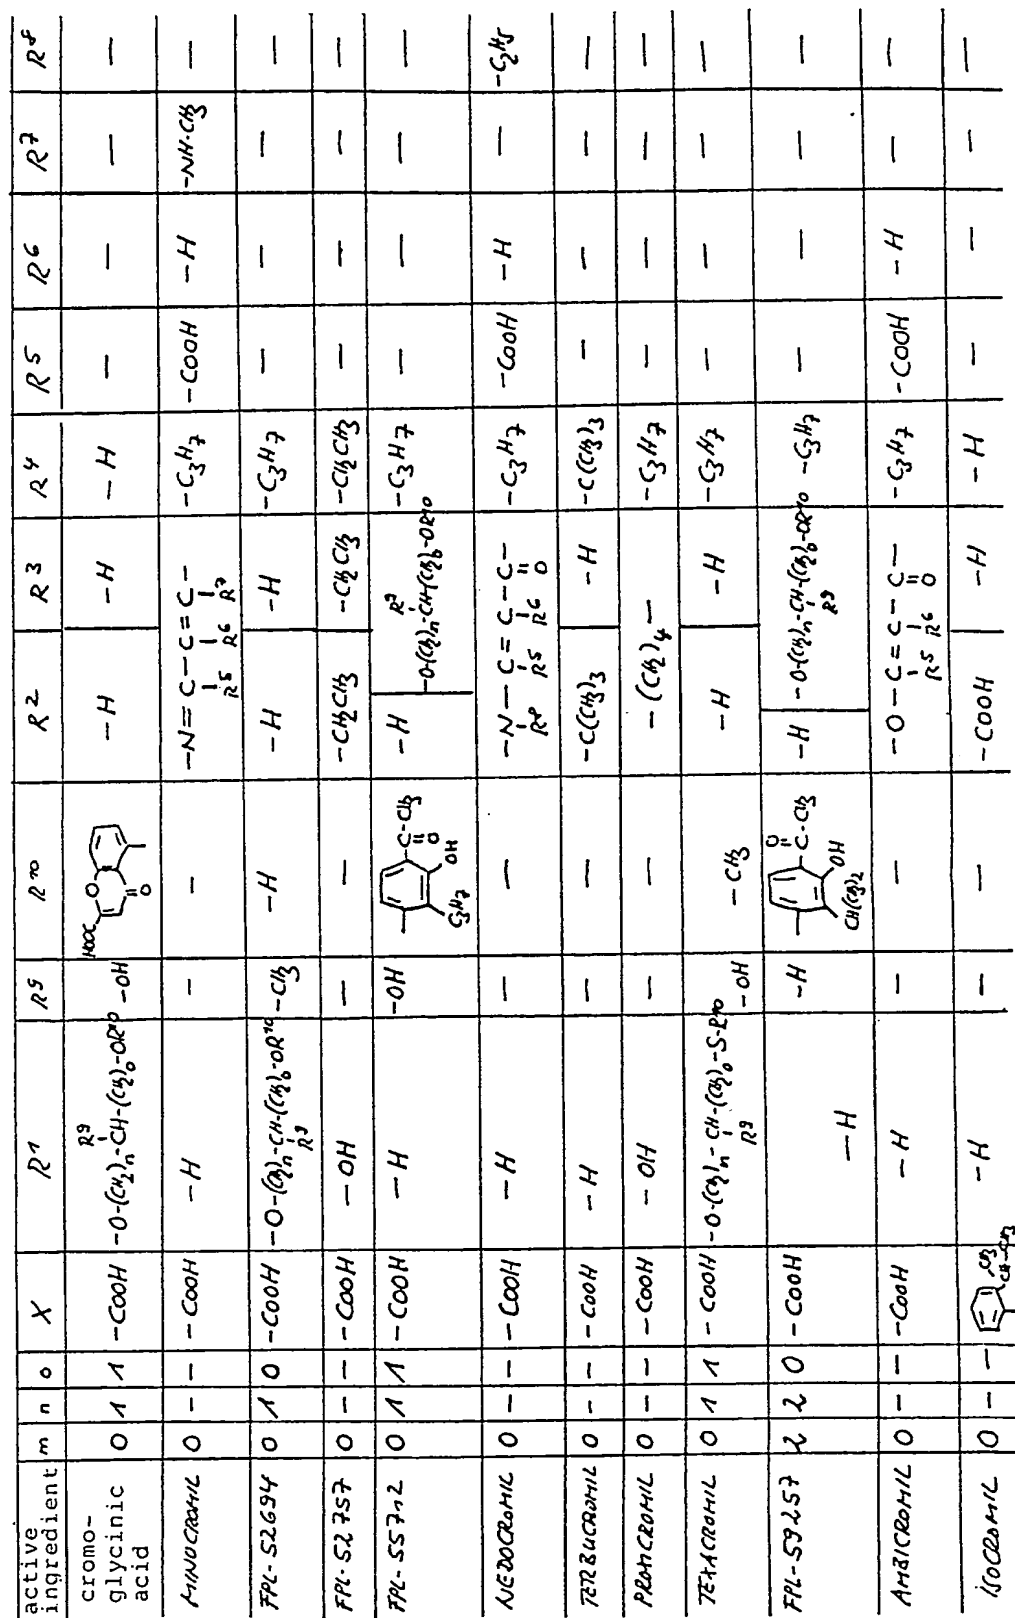 active ingredient | m | n | o | X | R1 | R9 | R10 | R2 | R3 | R4 | R5 | R6 | R7 | R8
cromo-glycinic acid | 0 | 1 | 1 | -COOH | -O-(CH2)n-CH(R9)-(CH2)o-OR10 | -OH | HOOC O O | -H | -H | -H | — | — | — | —
MINOCROMIL | 0 | - | - | -COOH | -H | — | — | -N=C(R5)-C(R6)=C(R7)- | -C3H7 | -COOH | -H | -NH-CH3 | —
FPL-52694 | 0 | 1 | 0 | -COOH | -O-(CH2)n-CH(R9)-(CH2)o-OR10 | -CH3 | -H | -H | -H | -C3H7 | — | — | — | —
FPL-52757 | 0 | - | - | -COOH | -OH | — | — | -CH2CH3 | -CH2CH3 | -CH2CH3 | — | — | — | —
FPL-55712 | 0 | 1 | 1 | -COOH | -H | -OH | C3H7 OH C-CH3 O | -H | -O-(CH2)n-CH(R9)-(CH2)o-OR10 | -C3H7 | — | — | — | —
NEDOCROMIL | 0 | - | - | -COOH | -H | — | — | -N(R8)-C(R5)=C(R6)-C(=O)- | -C3H7 | -COOH | -H | — | -C2H5
TERBUCROMIL | 0 | - | - | -COOH | -H | — | — | -C(CH3)3 | -H | -C(CH3)3 | — | — | — | —
PROXICROMIL | 0 | - | - | -COOH | -OH | — | — | -(CH2)4- | -C3H7 | — | — | — | —
TEXACROMIL | 0 | 1 | 1 | -COOH | -O-(CH2)n-CH(R9)-(CH2)o-S-R10 | -OH | -CH3 | -H | -H | -C3H7 | — | — | — | —
FPL-59257 | 2 | 2 | 0 | -COOH | -H | -H | CH(CH3)2 OH O C-CH3 | -H | -O-(CH2)n-CH(R9)-(CH2)o-OR10 | -C3H7 | — | — | — | —
AMBICROMIL | 0 | - | - | -COOH | -H | — | — | -O-C(R5)=C(R6)-C(=O)- | -C3H7 | -COOH | -H | — | —
ISOCROMIL | 0 | - | - | CH3 CH-CH3 | -H | — | — | -COOH | -H | -H | — | — | — | —